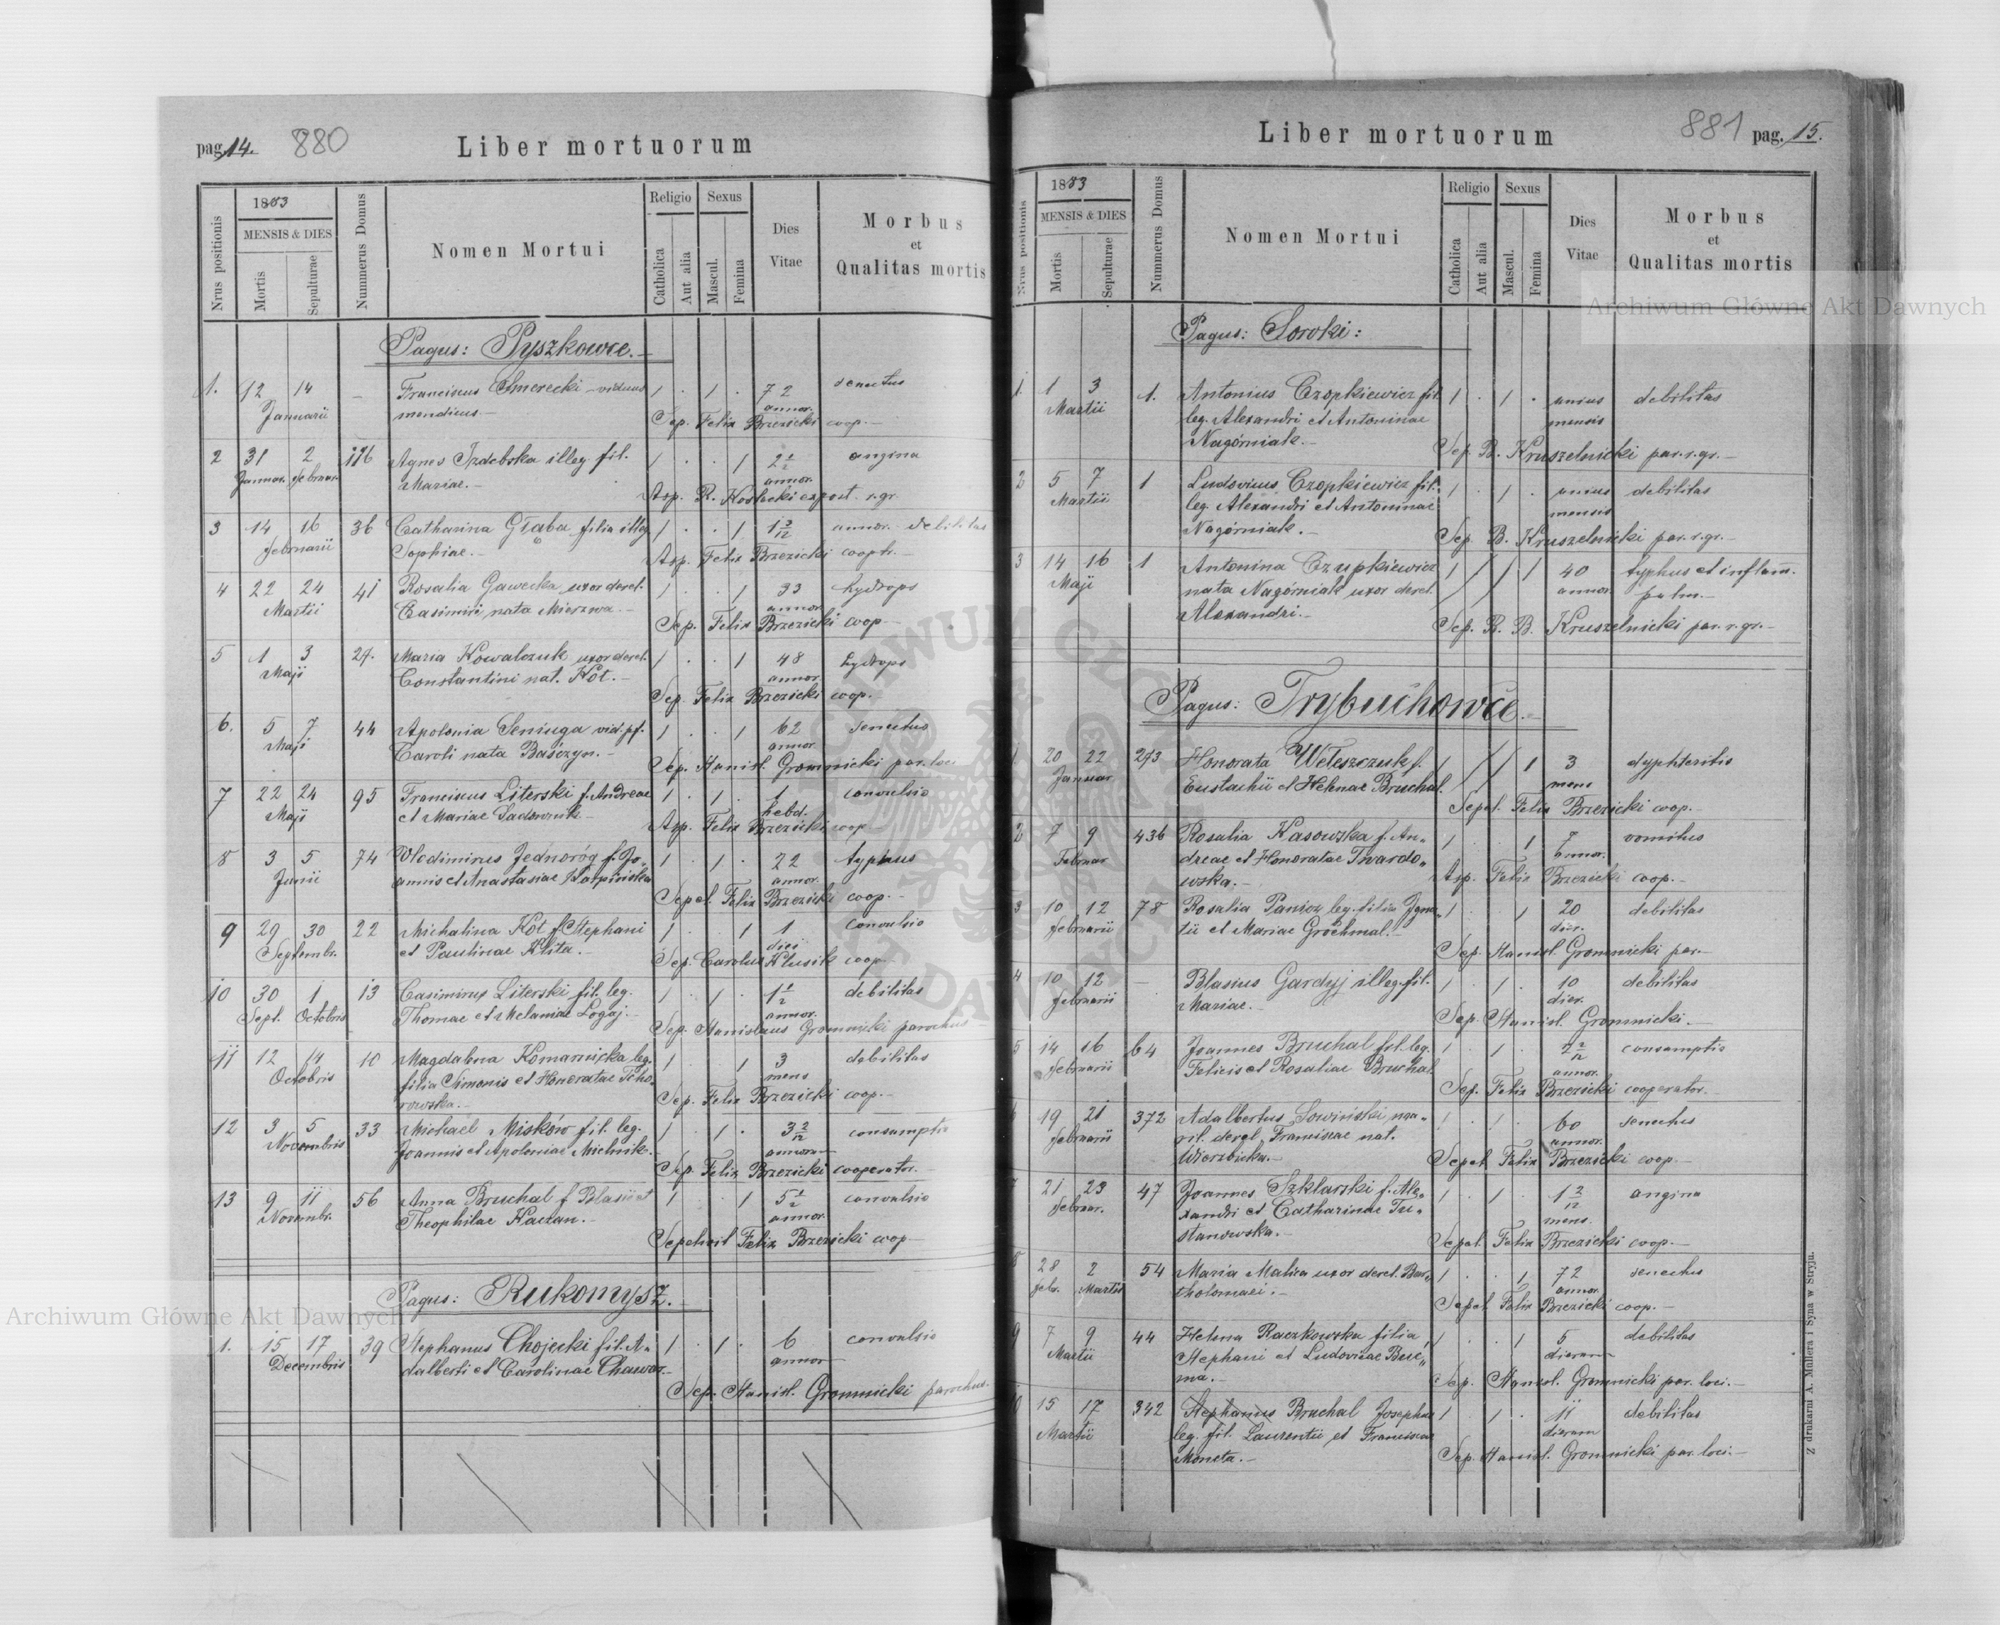 pag. 14. 880
Liber mortuorum
Nrus positionis
1883
MENSIS & DIES
Mortis
Sepulturae
Nummerus Domus
Nomen Mortui
Religio
Catholica
Aut alia
Sexus
Mascul.
Femina
Dies
Vitae
Morbus
et
Qualitas mortis
Pagus: Pyszkowce.
1. 12 14 – Franciscus Smerecki – viduus 1 . 1 . 72 senectus
Januarii mendicus.– annor.
Sep. Felix Brzezicki coop.–
2 31 2 116 Agnes Izdebska illeg. fil. 1 . . 1 2 1/2 angina
Januar. Februar. Mariae.– annor.
Asp. R. Kostecki expost. r. gr.
3 14 16 36 Catharina Głąba filia illeg. 1 . . 1 annor. debilitas
Februarii Sophiae.–
Asp. Felix Brzezicki
4 22 24 41 Rosalia Gawecka uxor derel. 1 . . 1 33 hydrops
Martii Casimiri nata Mierzwa.– annor.
Sep. Felix Brzezicki coop.–
5 1 3 27. Maria Kowalczuk uxor derel. 1 . . 1 48 hydrops
Maji Constantini nat. Kot.– annor.
Sep. Felix Brzezicki coop.
6. 5 7 44 Apolonia Seniuga vid. p.f. 1 . . 1 62 senectus
Maji Caroli nata annor.
Sep. Stanisl. Gromnicki par. loci
7 22 24 95 Franciscus Literski f. Andreae 1 . 1 . 1 convulsio
Maji et Mariae Sadownik.– hebd.
Asp. Felix Brzezicki coop.–
8 3 5 74 Wlodimirus Jednoróg f. Jo- 1 . 1 . 22 typhus
Junii annis et Anastasiae Karpińska annor.
Sepel. Felix Brzezicki coop.–
9 29 30 22 Michalina Kot f. Stephani 1 . . 1 1 convulsio
Septembr. et Paulinae Klita.– diei
Sep. Carolus Klusik coop.–
10 30 1 13 Casimirus Literski fil. leg. 1 . 1 . 1 1/2 debilitas
Sept. Octobris Thomae et Melaniae Logaj.– annor.
Sep. Stanislaus Gromnicki parochus
11 12 14 10 Magdalena Komarnijska leg. 1 . . 1 3 debilitas
Octobris filia Simonis et Honoratae Tcho- mens
rowska.–
Sep. Felix Brzezicki coop.–
12 3 5 33 Michael Miskόw fil. leg. 1 . 1 . 3 2/12 consumptio
Novembris Joannis et Apoloniae Mielnik.– annorum
Sep. Felix Brzezicki cooperator.–
13 9 11 56 Anna Bruchal f. Blasii et 1 . . 1 5 1/2 convulsio
Novembr. Theophilae Kaczan.– annor.
Sepelivit Felix Brzezicki coop
Pagus: Rukomysz.–
1. 15 17 39 Stephanus Chojecki fil. A- 1 . 1 . 6 convulsio
Decembris dalberti et Carolinae annor
Sep. Stanisl. Gromnicki parochus.
Liber mortuorum
881 pag. 15.
Nrus positionis
1883
MENSIS & DIES
Mortis
Sepulturae
Nummerus Domus
Nomen Mortui
Religio
Catholica
Aut alia
Sexus
Mascul.
Femina
Dies
Vitae
Morbus
et
Qualitas mortis
Pagus: Soroki:
1. 1 3 1. Antonius Czopkiewicz fil. 1 . 1 . unius debilitas
Martii leg. Alexandri et Antoninae mensis
Nagórniak.–
Sep. B. Kruszelnicki par. r. gr.–
2 5 7 1 Ludovicus Czopkiewicz fil. 1 . 1 . unius debilitas
Martii leg. Alexandri et Antoninae mensis
Nagórniak.–
Sep. B. Kruszelnicki par. r. gr.–
3 14 16 1 Antonina Czupkiewicz 1 / / 1 40 typhus et inflam.
Maji nata Nagórniak uxor derel. annor. pulm.–
Alexandri.–
Sep. R. B. Kruszelnicki par. r. gr.–
Pagus: Trybuchowce.–
1 20 22 293 Honorata Weleszczuk f. 1 / / 1 3 dyphteritis
Januar. Eustachii et Helenae Bruchal. mens
Sepel. Felix Brzezicki coop.–
2 7 9 436 Rosalia Kasowska f. An- 1 . 1 7 vomitus
Februar dreae et Honoratae Twardo- annor.
wska.–
Asp. Felix Brzezicki coop.–
3 10 12 78 Rosalia Panicz leg. filia Igna- 1 . . 1 20 debilitas
Februarii tii et Mariae Grochmal.– dier.
Sep. Stanisl. Gromnicki par.–
4 10 12 – Blasius Gardyj illeg. fil. 1 . 1 . 10 debilitas
Februarii Mariae.– dier.
Sep. Stanisl. Gromnicki.–
5 14 16 64 Joannes Bruchal fil. leg. 1 . 1 . consumptio
Februarii Felicis et Rosaliae Bruchal annor.
Sep. Felix Brzezicki cooperator.–
6 19 21 372 Adalbertus Sowiński ma- 1 . 1 . 60 senectus
Februarii rit. derel. Franciscae nat. annor.
Wierzbicka.–
Sepel. Felix Brzezicki coop.–
7 21 23 47 Joannes Szklarski f. Ale- 1 . 1 . 1 2/12 angina
Februar. xandri et Catharinae Tu- mens.
stanowska.–
Sepel. Felix Brzezicki coop.–
8 28 2 54 Maria Malica uxor derel. Bar- 1 . 1 72 senectus
Febr. Martii tholomaei.– annor.
Sepel. Felix Brzezicki coop.–
9 7 9 44 Helena Raczkowska filia 1 . 1 5 debilitas
Martii Stephani et Ludovicae Buc- dierum
ma.–
Sep. Stanisl. Gromnicki par. loci.–
10 15 17 342 Stephanus Bruchal Josephus 1 . 1 . 11 debilitas
Martii leg. fil. Laurentii et Franciscae dierum
Moneta.–
Sep. Stanisl. Gromnicki par. loci.–
Z drukarni A. Müllera i Syna w Stryju.
Archiwum Główne Akt Dawnych
Archiwum Główne Akt Dawnych
ARCHIWUM GŁÓWNE AKT DAWNYCH